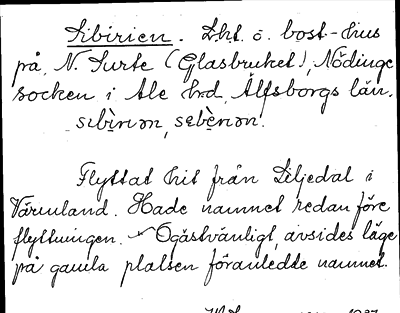 Sibirien. Lht. o. bost.-hus
på N. Surte (Glasbruket), Nödinge
socken i Ale hrd, Älfsborgs län.
sıbìrıən, sebèrıən.
Flyttat hit från Liljedal i
Värmland. Hade namnet redan före
flyttningen. Ogästvänligt, avsides läge
på gamla platsen föranledde namnet.